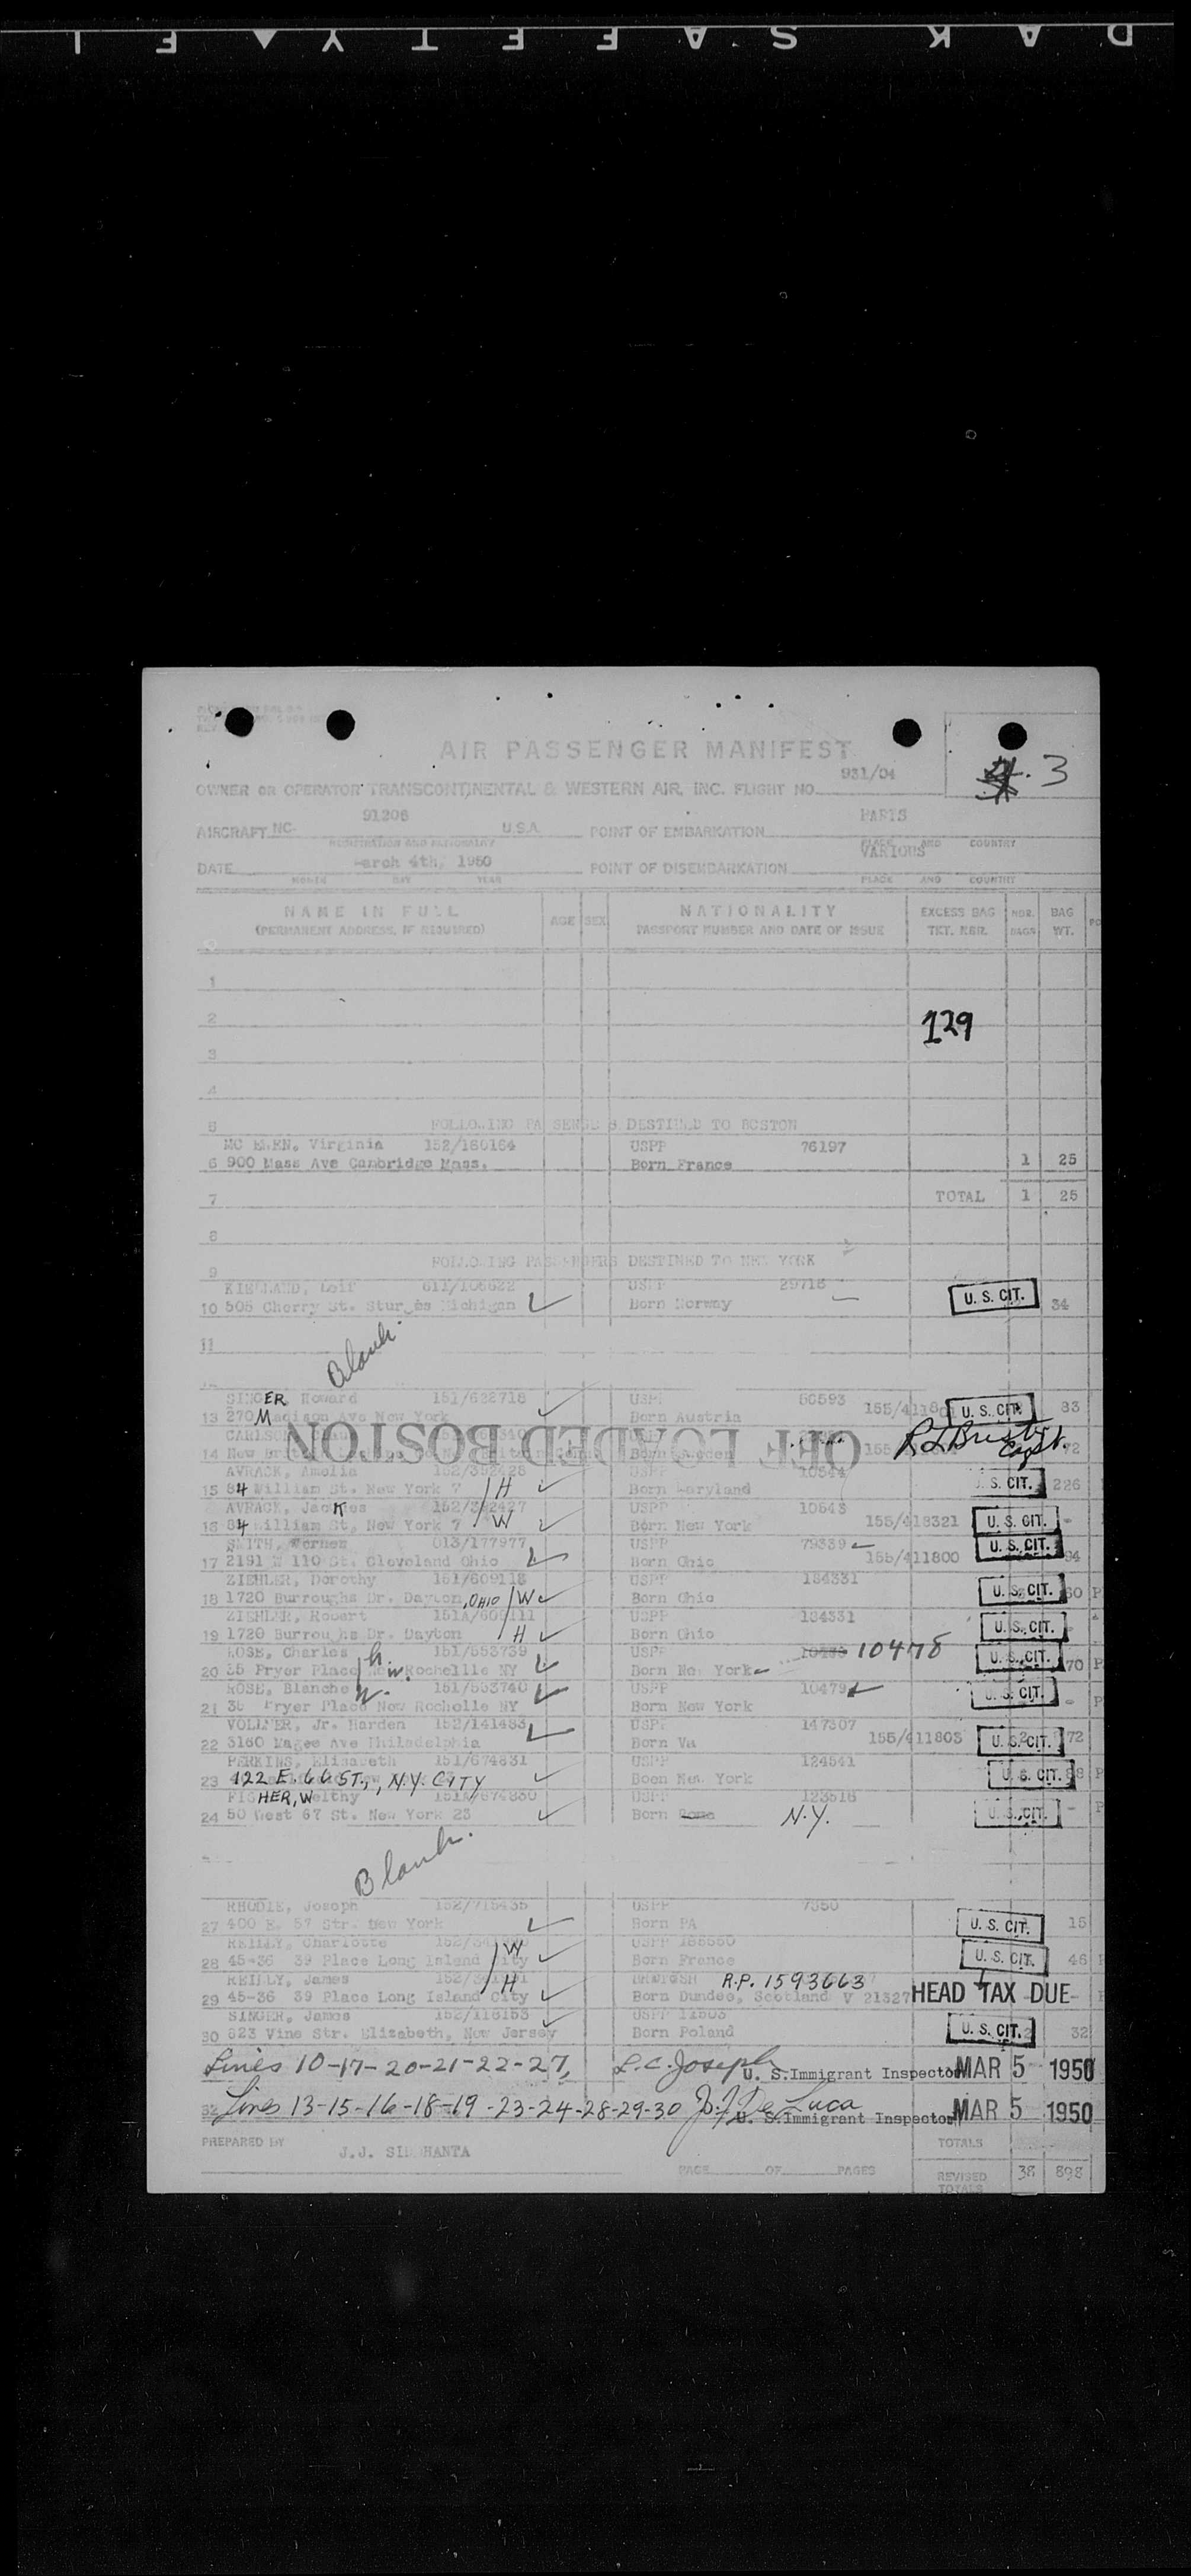 SAFETY
AIR PASSENGER MANIFEST
3
931/04
OWNER OR OPERATOR TRANSCONTINENTAL & WESTERN AIR, INC. FLIGHT NO.
91206 PARIS
AIRCRAFT NC. U.S.A. POINT OF EMBARKATION
REGISTRATION AND NATIONALITY PLACE AND COUNTRY
March 4th, 1950 VARIOUS
DATE POINT OF DISEMBARKATION
MONTH DAY YEAR PLACE AND COUNTRY
NAME IN FULL AGE SEX NATIONALITY EXCESS BAG NBR. BAG
(PERMANENT ADDRESS, IF REQUIRED) PASSPORT NUMBER AND DATE OF ISSUE TKT. NBR. BAGS WT.
1
2 129
3
4
5 FOLLOWING PASSENGERS DESTINED TO BOSTON
MC EWEN, Virginia 152/180164 USPP 76197
6 900 Mass Ave Cambridge Mass. Born France 1 25
7 TOTAL 1 25
8
9 FOLLOWING PASSENGERS DESTINED TO NEW YORK
Leif 611/106622 USPP 29718
10 505 Cherry St. Sturges Michigan Born Norway U. S. CIT. 34
11 Blank.
SINGER, Howard 151/622718 USPP 56593
13 270 Madison Ave New York Born Austria U. S. CIT. 83
OFF LOADED BOSTON
14 New Born Sweden 72
AVRACK, Amelia 152/352428 USPP 10544
15 84 William St. New York 7 H Born Maryland S. CIT. 226
AVRACK, Jackes 152/352427 USPP 10543
16 84 William St. New York 7 W Born New York 155/418321 U. S. CIT. -
SMITH, 013/177977 USPP 79339 U. S. CIT.
17 2191 W 110 St. Cleveland Ohio Born Ohio 155/411800 94
ZIEHLER, Dorothy 151/609118 USPP 184331
18 1720 Burroughs Dr. Dayton, OHIO W Born Ohio U. S. CIT. 60 P
ZIEHLER, Robert USPP 184331
19 1720 Burroughs Dr. Dayton H Born Ohio U. S. CIT.
ROSE, Charles 151/553739 h. USPP 10478
20 35 Pryer Place New Rochelle NY w. Born New York U. S. CIT. 70 P
ROSE, Blanche 151/553740 USPP 10479
21 35 Pryer Place New Rochelle NY Born New York U. S. CIT. - P
VOLLMER, Jr. Harden 152/141483 USPP 147307
22 3160 Magee Ave Philadelphia Born Va 155/411803 U. S. CIT. 72
PERKINS, Elisabeth 151/674831 USPP 124541
23 122 E. 66 ST., N.Y. CITY Boen New York U. S. CIT. 88 P
FISHER, Welthy 151A/674830 USPP 123518
24 50 West 67 St. New York 23 Born Rome N.Y. U. S. CIT. - P
Blank.
RHODIE, Joseph 152/715435 USPP 7350
27 400 E. 57 Str. New York Born PA U. S. CIT. 15
REILLY, Charlotte USPP
28 45-36 39 Place Long Island City W Born France U. S. CIT. 46
REILLY, James BRITISH R.P. 1593663
29 45-36 39 Place Long Island City H Born Dundee, Scotland V 21327 HEAD TAX DUE
SINGER, James 152/116153 USPP 11503
30 823 Vine Str. Elizabeth, New Jersey Born Poland U. S. CIT. 32
Lines 10-17-20-21-22-27, L.C. Joseph U. S. Immigrant Inspector MAR 5 1950
32 Lines 13-15-16-18-19-23-24-28-29-30 J. J. De Luca U. S. Immigrant Inspector MAR 5 1950
PREPARED BY TOTALS
J.J.
PAGE OF PAGES REVISED TOTALS 38 898